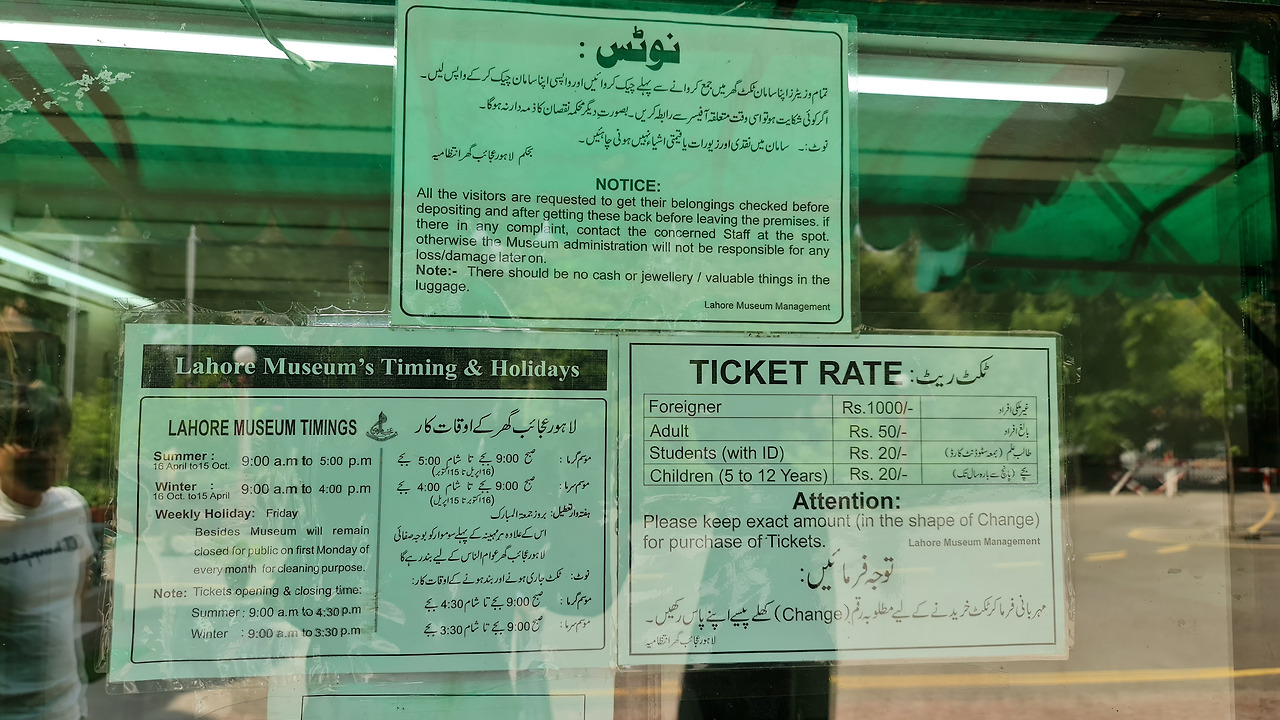 نوٹس :
تمام وزیٹرز اپنا سامان ٹکٹ گھر میں جمع کروانے سے پہلے چیک کروائیں اور واپسی اپنا سامان چیک کر کے واپس لیں۔
اگر کوئی شکایت ہو تو اسی وقت متعلقہ آفیسر سے رابطہ کریں۔ بصورت دیگر محکمہ نقصان کا ذمہ دار نہ ہوگا۔
نوٹ:۔ سامان میں نقدی اور زیورات یا قیمتی اشیاء نہیں ہونی چاہئیں۔
بحکم لاہور عجائب گھر انتظامیہ
NOTICE:
All the visitors are requested to get their belongings checked before
depositing and after getting these back before leaving the premises. if
there in any complaint, contact the concerned Staff at the spot.
otherwise the Museum administration will not be responsible for any
loss/damage later on.
Note:- There should be no cash or jewellery / valuable things in the
luggage.
Lahore Museum Management
Lahore Museum's Timing & Holidays
LAHORE MUSEUM TIMINGS
Summer :
16 April to 15 Oct.
9:00 a.m to 5:00 p.m
Winter :
16 Oct. to 15 April
9:00 a.m to 4:00 p.m
Weekly Holiday: Friday
Besides Museum will remain
closed for public on first Monday of
every month for cleaning purpose.
Note: Tickets opening & closing time:
Summer : 9:00 a.m to 4:30 p.m
Winter : 9:00 a.m to 3:30 p.m
لاہور عجائب گھر کے اوقات کار
موسم گرما: صبح 9:00 بجے تا شام 5:00 بجے
(16 اپریل تا 15 اکتوبر)
موسم سرما: صبح 9:00 بجے تا شام 4:00 بجے
(16 اکتوبر تا 15 اپریل)
ہفتہ وار تعطیل: بروز جمعۃ المبارک
اس کے علاوہ ہر مہینہ کے پہلے سوموار کو بوجہ صفائی
لاہور عجائب گھر عوام الناس کے لیے بند رہے گا
نوٹ: ٹکٹ جاری ہونے اور بند ہونے کے اوقات کار:
موسم گرما: صبح 9:00 بجے تا شام 4:30 بجے
موسم سرما: صبح 9:00 بجے تا شام 3:30 بجے
TICKET RATE ٹکٹ ریٹ:
Foreigner Rs.1000/- غیر ملکی افراد
Adult Rs. 50/- بالغ افراد
Students (with ID) Rs. 20/- طالب علم (بمعہ سٹوڈنٹ کارڈ)
Children (5 to 12 Years) Rs. 20/- بچے (پانچ سے بارہ سال تک)
Attention:
Please keep exact amount (in the shape of Change)
for purchase of Tickets.
Lahore Museum Management
توجہ فرمائیں:
مہربانی فرما کر ٹکٹ خریدنے کے لیے مطلوبہ رقم (Change) کھلے پیسے اپنے پاس رکھیں۔
لاہور عجائب گھر انتظامیہ